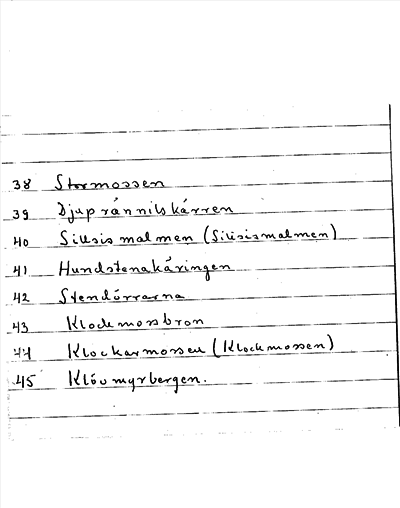 38 Stormossen
39 Djuprännilskärren
40 Sillsismalmen (Silisismalmen)
41 Hundstenakäringen
42 Stendörrarna
43 Klockmossbron
44 Klockarmossen (Klockmossen)
45 Klövmyrbergen.